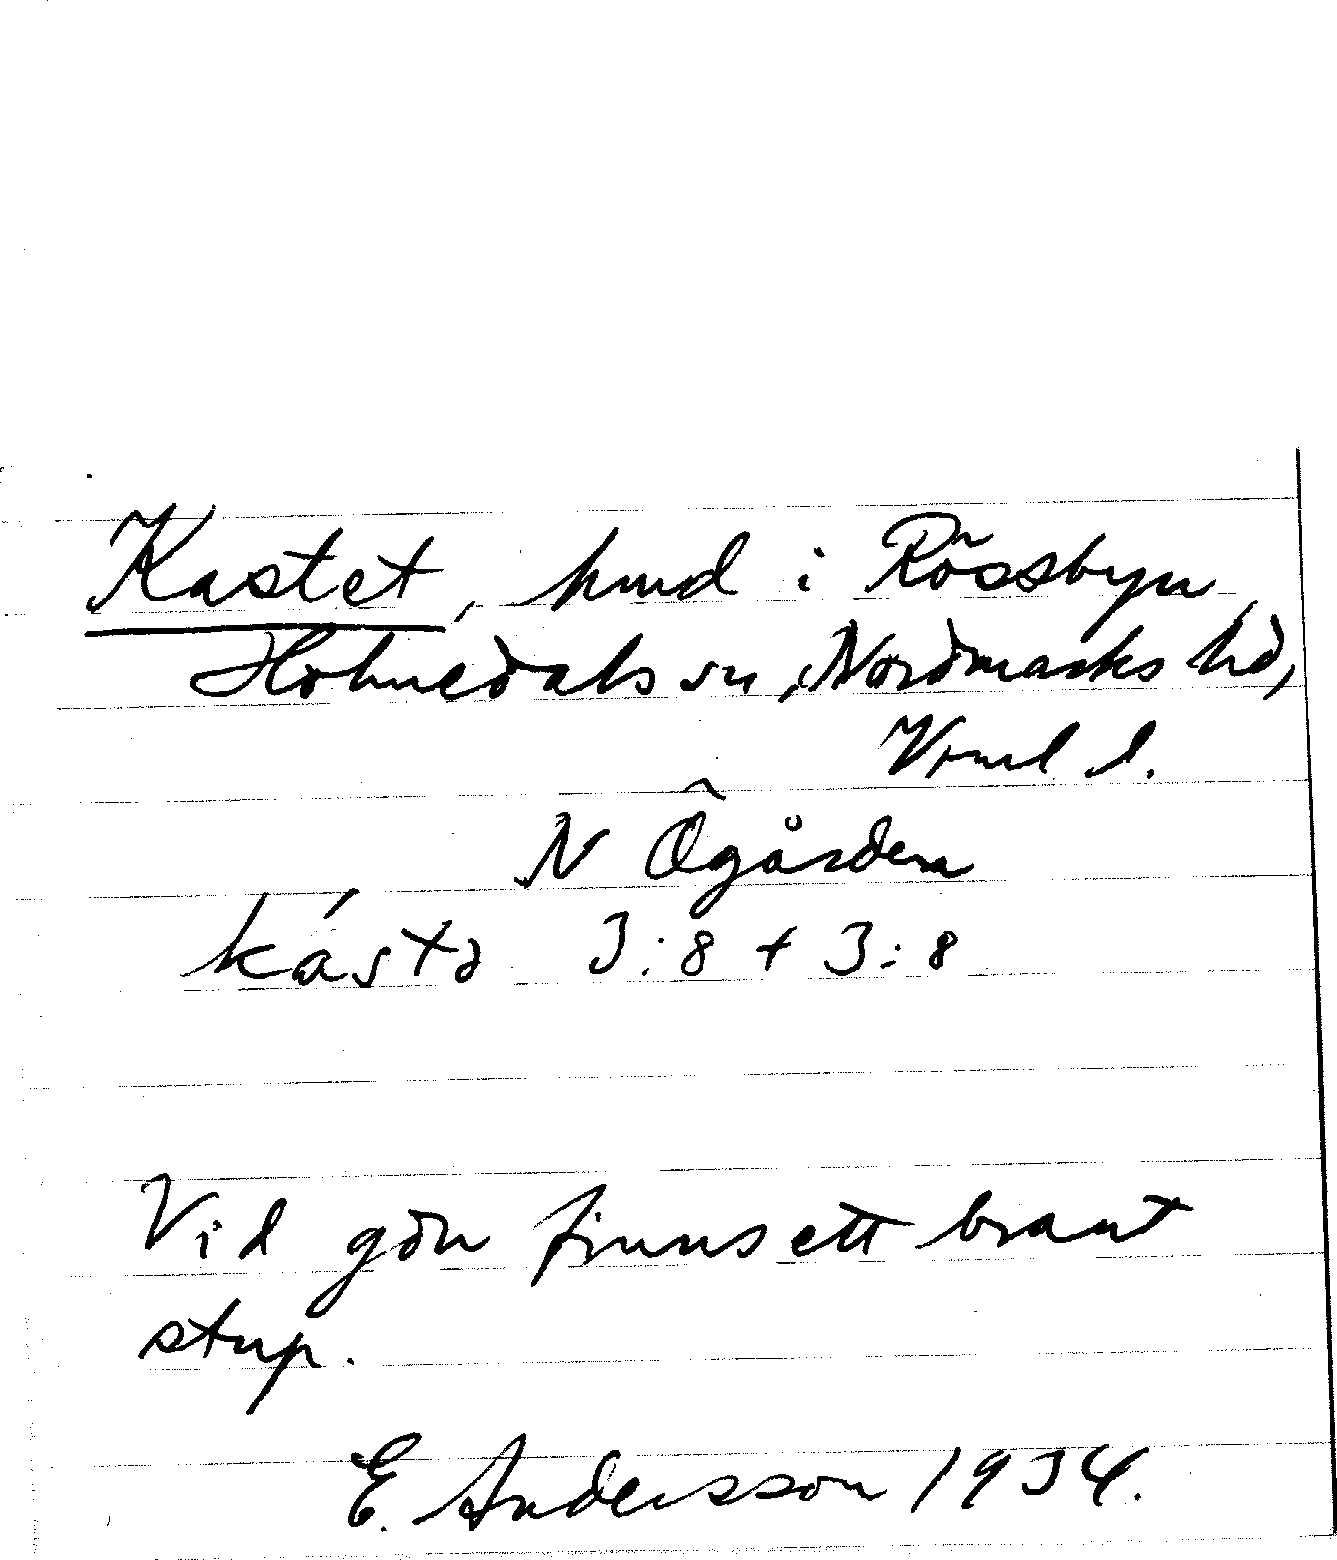 Kastet, hmd i Rössbyn
Holmedals sn, Nordmarks hd,
Vrml l.
N Ögården
kástə 3:8 + 3:8
Vid gdn finns ett brant
stup.
E. Andersson 1934.